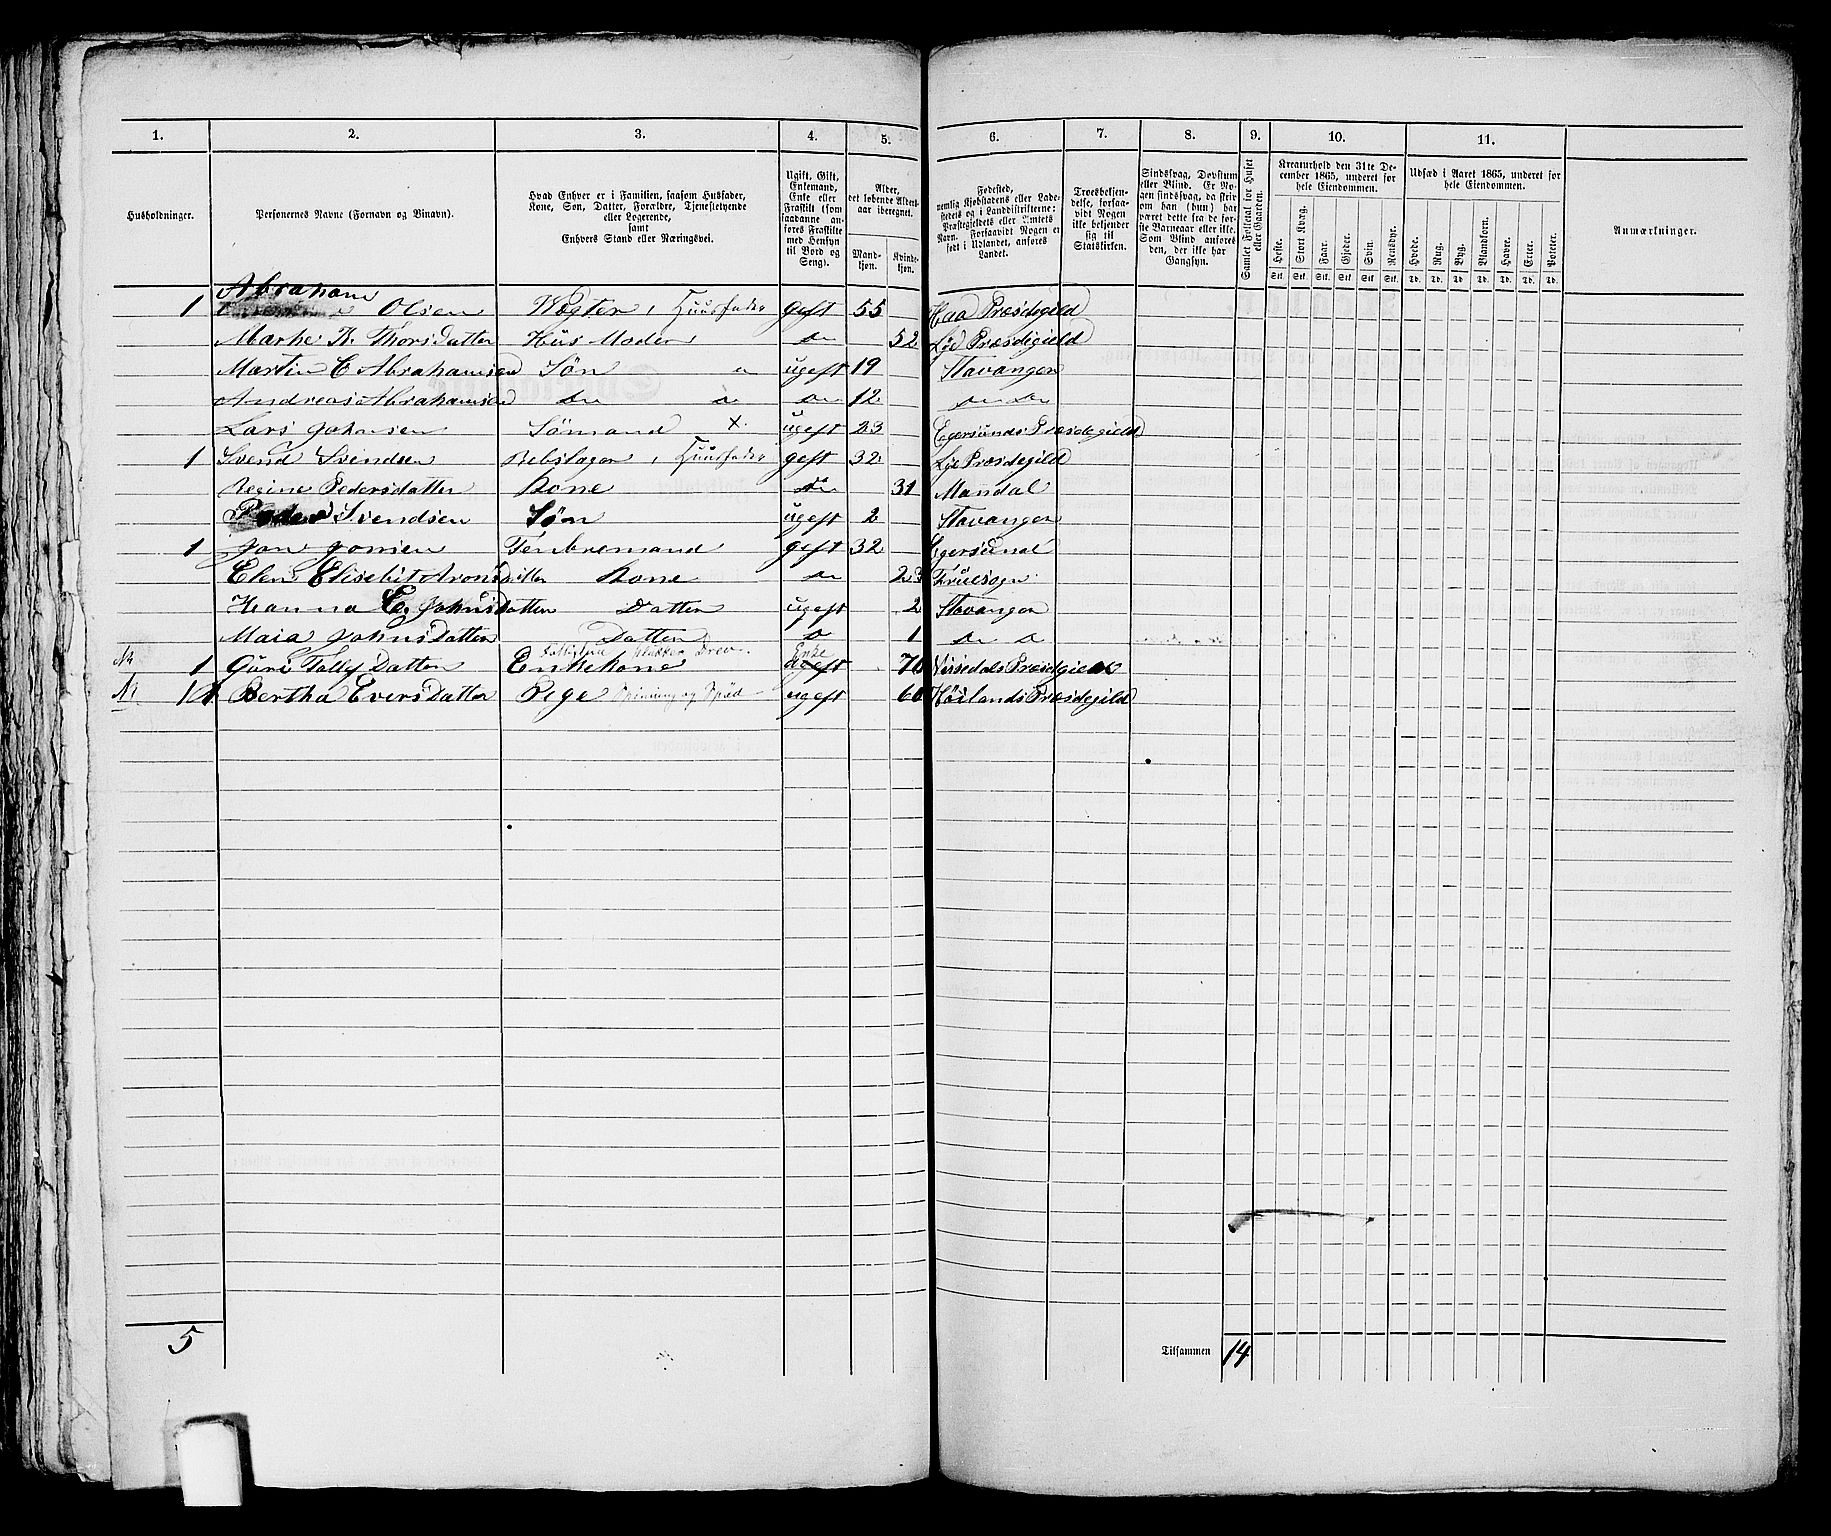 1. 2. 3. 4. 5. 6. 7. 8. 9. 10. 11.
Husholdninger.
Personernes Navne (Fornavn og Binavn).
Hvad Enhver er i Familien, saasom Husfader,
Kone, Søn, Datter, Forældre, Tjenestetyende
eller Logerende,
samt
Enhvers Stand eller Næringsvei.
Ugift, Gift,
Enkemand,
Enke eller
Fraskilt (som
saadanne an-
føres Fraskilte
med Hensyn
til Bord og
Seng).
Alder,
det løbende Alders-
aar iberegnet.
Mand-
kjøn.
Kvinde-
kjøn.
Fødested,
nemlig Kjøbstadens eller Lade-
stedets og i Landdistrikterne:
Præstegjeldets eller Amtets
Navn. Forsaavidt Nogen er
født i Udlandet, anføres
Landet.
Troesbekjen-
delse, forsaa-
vidt Nogen
ikke bekjender
sig til
Statskirken.
Sindssvag, Døvstum
eller Blind. Er No-
gen sindssvag, da skriv
om han (hun) har
været dette fra de før-
ste Barneaar eller ikke.
Som Blind anføres
den, der ikke har
Gangsyn.
Samlet Folketal for Huset
eller Gaarden.
Kreaturhold den 31te De-
cember 1865, underet for
hele Eiendommen.
Heste. Stort Kvæg. Faar. Gjeder. Svin. Rensdyr.
Stk. Stk. Stk. Stk. Stk. Stk.
Udsæd i Aaret 1865, underet for
hele Eiendommen.
Hvede. Rug. Byg. Blandkorn. Havre. Erter. Poteter.
Td. Td. Td. Td. Td. Td. Td.
Anmærkninger.
Abraham
1 Olsen Vægter, Huusfader geft 55 Haa Præsdegield
Marhe T. Thors Datter Hus Moder do 52 Lye Præsdegield
Martin C Abrahamsen Søn " ugeft 19 Stavanger
Andreas Abrahamsen do do 12 do do
Lars Johnsen Sømand X. ugeft 23 Egersunds Præsdegield
1 Svend Svendsen Rebslager, Huusfader geft 32 Lye Præsdegield
Regine Pedersdatter Kone do 31 Mandal
Peder Svendsen Søn ugeft 2 Stavanger
1 Jon Jonsen Tønbremand geft 32 Egersund
Elen Elisebit Arons datter Kone do 23 Fruesogn
Hanna E. Johnsdatter Datter ugeft 2 Stavanger
Maia Johns Datter Datter 1 do
1 Guri Tollef Datter Enkekone plukker Drev. Enke ugeft 70 Præsdegield
1 Bertha Evers Datter Pige Spinning og ugeft 60 Høilands Præsdegild
5
Tilsammen 14